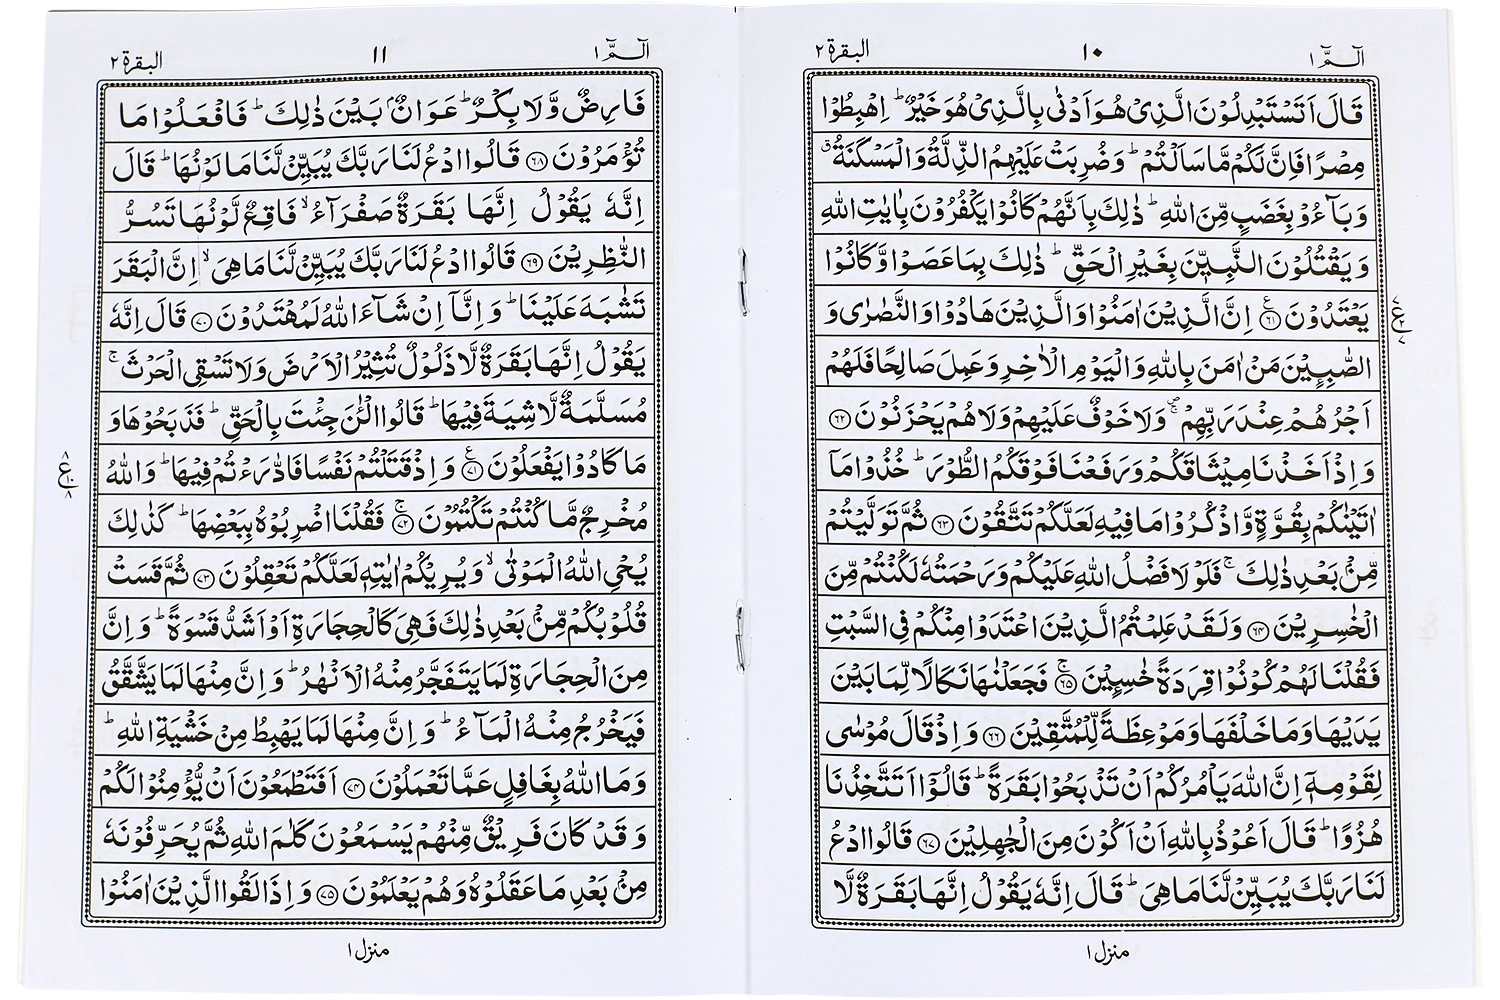 الٓـمّٓ ١
١٠
البقرة ٢
قَالَ اَتَسْتَبْدِلُوْنَ الَّذِیْ هُوَ اَدْنٰی بِالَّذِیْ هُوَ خَیْرٌ ؕ اِهْبِطُوْا
مِصْرًا فَاِنَّ لَكُمْ مَّا سَاَلْتُمْ ؕ وَ ضُرِبَتْ عَلَیْهِمُ الذِّلَّةُ وَ الْمَسْكَنَةُ ۗ
وَ بَآءُوْ بِغَضَبٍ مِّنَ اللّٰهِ ؕ ذٰلِكَ بِاَنَّهُمْ كَانُوْا یَكْفُرُوْنَ بِاٰیٰتِ اللّٰهِ
وَ یَقْتُلُوْنَ النَّبِیّٖنَ بِغَیْرِ الْحَقِّ ؕ ذٰلِكَ بِمَا عَصَوْا وَّ كَانُوْا
یَعْتَدُوْنَ ﴿٦١﴾ اِنَّ الَّذِیْنَ اٰمَنُوْا وَ الَّذِیْنَ هَادُوْا وَ النَّصٰرٰی وَ
الصّٰبِـِٕیْنَ مَنْ اٰمَنَ بِاللّٰهِ وَ الْیَوْمِ الْاٰخِرِ وَ عَمِلَ صَالِحًا فَلَهُمْ
اَجْرُهُمْ عِنْدَ رَبِّهِمْ ۪ۚ وَ لَا خَوْفٌ عَلَیْهِمْ وَ لَا هُمْ یَحْزَنُوْنَ ﴿٦٢﴾
وَ اِذْ اَخَذْنَا مِیْثَاقَكُمْ وَ رَفَعْنَا فَوْقَكُمُ الطُّوْرَ ؕ خُذُوْا مَاۤ
اٰتَیْنٰكُمْ بِقُوَّةٍ وَّ اذْكُرُوْا مَا فِیْهِ لَعَلَّكُمْ تَتَّقُوْنَ ﴿٦٣﴾ ثُمَّ تَوَلَّیْتُمْ
مِّنْۢ بَعْدِ ذٰلِكَ ۚ فَلَوْ لَا فَضْلُ اللّٰهِ عَلَیْكُمْ وَ رَحْمَتُهٗ لَكُنْتُمْ مِّنَ
الْخٰسِرِیْنَ ﴿٦٤﴾ وَ لَقَدْ عَلِمْتُمُ الَّذِیْنَ اعْتَدَوْا مِنْكُمْ فِی السَّبْتِ
فَقُلْنَا لَهُمْ كُوْنُوْا قِرَدَةً خٰسِـِٕیْنَ ۚ﴿٦٥﴾ فَجَعَلْنٰهَا نَكَالًا لِّمَا بَیْنَ
یَدَیْهَا وَ مَا خَلْفَهَا وَ مَوْعِظَةً لِّلْمُتَّقِیْنَ ﴿٦٦﴾ وَ اِذْ قَالَ مُوْسٰی
لِقَوْمِهٖۤ اِنَّ اللّٰهَ یَاْمُرُكُمْ اَنْ تَذْبَحُوْا بَقَرَةً ؕ قَالُوْۤا اَتَتَّخِذُنَا
هُزُوًا ؕ قَالَ اَعُوْذُ بِاللّٰهِ اَنْ اَكُوْنَ مِنَ الْجٰهِلِیْنَ ﴿٦٧﴾ قَالُوا ادْعُ
لَنَا رَبَّكَ یُبَیِّنْ لَّنَا مَا هِیَ ؕ قَالَ اِنَّهٗ یَقُوْلُ اِنَّهَا بَقَرَةٌ لَّا
منزل ١
الٓـمّٓ ١
١١
البقرة ٢
فَارِضٌ وَّ لَا بِكْرٌ ؕ عَوَانٌۢ بَیْنَ ذٰلِكَ ؕ فَافْعَلُوْا مَا
تُؤْمَرُوْنَ ﴿٦٨﴾ قَالُوا ادْعُ لَنَا رَبَّكَ یُبَیِّنْ لَّنَا مَا لَوْنُهَا ؕ قَالَ
اِنَّهٗ یَقُوْلُ اِنَّهَا بَقَرَةٌ صَفْرَآءُ ۙ فَاقِعٌ لَّوْنُهَا تَسُرُّ
النّٰظِرِیْنَ ﴿٦٩﴾ قَالُوا ادْعُ لَنَا رَبَّكَ یُبَیِّنْ لَّنَا مَا هِیَ ۙ اِنَّ الْبَقَرَ
تَشٰبَهَ عَلَیْنَا ؕ وَ اِنَّاۤ اِنْ شَآءَ اللّٰهُ لَمُهْتَدُوْنَ ﴿٧٠﴾ قَالَ اِنَّهٗ
یَقُوْلُ اِنَّهَا بَقَرَةٌ لَّا ذَلُوْلٌ تُثِیْرُ الْاَرْضَ وَ لَا تَسْقِی الْحَرْثَ ۚ
مُسَلَّمَةٌ لَّا شِیَةَ فِیْهَا ؕ قَالُوا الْـٰٔنَ جِئْتَ بِالْحَقِّ ؕ فَذَبَحُوْهَا وَ
مَا كَادُوْا یَفْعَلُوْنَ ﴿٧١﴾ وَ اِذْ قَتَلْتُمْ نَفْسًا فَادّٰرَءْتُمْ فِیْهَا ؕ وَ اللّٰهُ
مُخْرِجٌ مَّا كُنْتُمْ تَكْتُمُوْنَ ۚ﴿٧٢﴾ فَقُلْنَا اضْرِبُوْهُ بِبَعْضِهَا ؕ كَذٰلِكَ
یُحْیِ اللّٰهُ الْمَوْتٰی ۙ وَ یُرِیْكُمْ اٰیٰتِهٖ لَعَلَّكُمْ تَعْقِلُوْنَ ﴿٧٣﴾ ثُمَّ قَسَتْ
قُلُوْبُكُمْ مِّنْۢ بَعْدِ ذٰلِكَ فَهِیَ كَالْحِجَارَةِ اَوْ اَشَدُّ قَسْوَةً ؕ وَ اِنَّ
مِنَ الْحِجَارَةِ لَمَا یَتَفَجَّرُ مِنْهُ الْاَنْهٰرُ ؕ وَ اِنَّ مِنْهَا لَمَا یَشَّقَّقُ
فَیَخْرُجُ مِنْهُ الْمَآءُ ؕ وَ اِنَّ مِنْهَا لَمَا یَهْبِطُ مِنْ خَشْیَةِ اللّٰهِ ؕ
وَ مَا اللّٰهُ بِغَافِلٍ عَمَّا تَعْمَلُوْنَ ﴿٧٤﴾ اَفَتَطْمَعُوْنَ اَنْ یُّؤْمِنُوْا لَكُمْ
وَ قَدْ كَانَ فَرِیْقٌ مِّنْهُمْ یَسْمَعُوْنَ كَلٰمَ اللّٰهِ ثُمَّ یُحَرِّفُوْنَهٗ
مِنْۢ بَعْدِ مَا عَقَلُوْهُ وَ هُمْ یَعْلَمُوْنَ ﴿٧٥﴾ وَ اِذَا لَقُوا الَّذِیْنَ اٰمَنُوْا
منزل ١